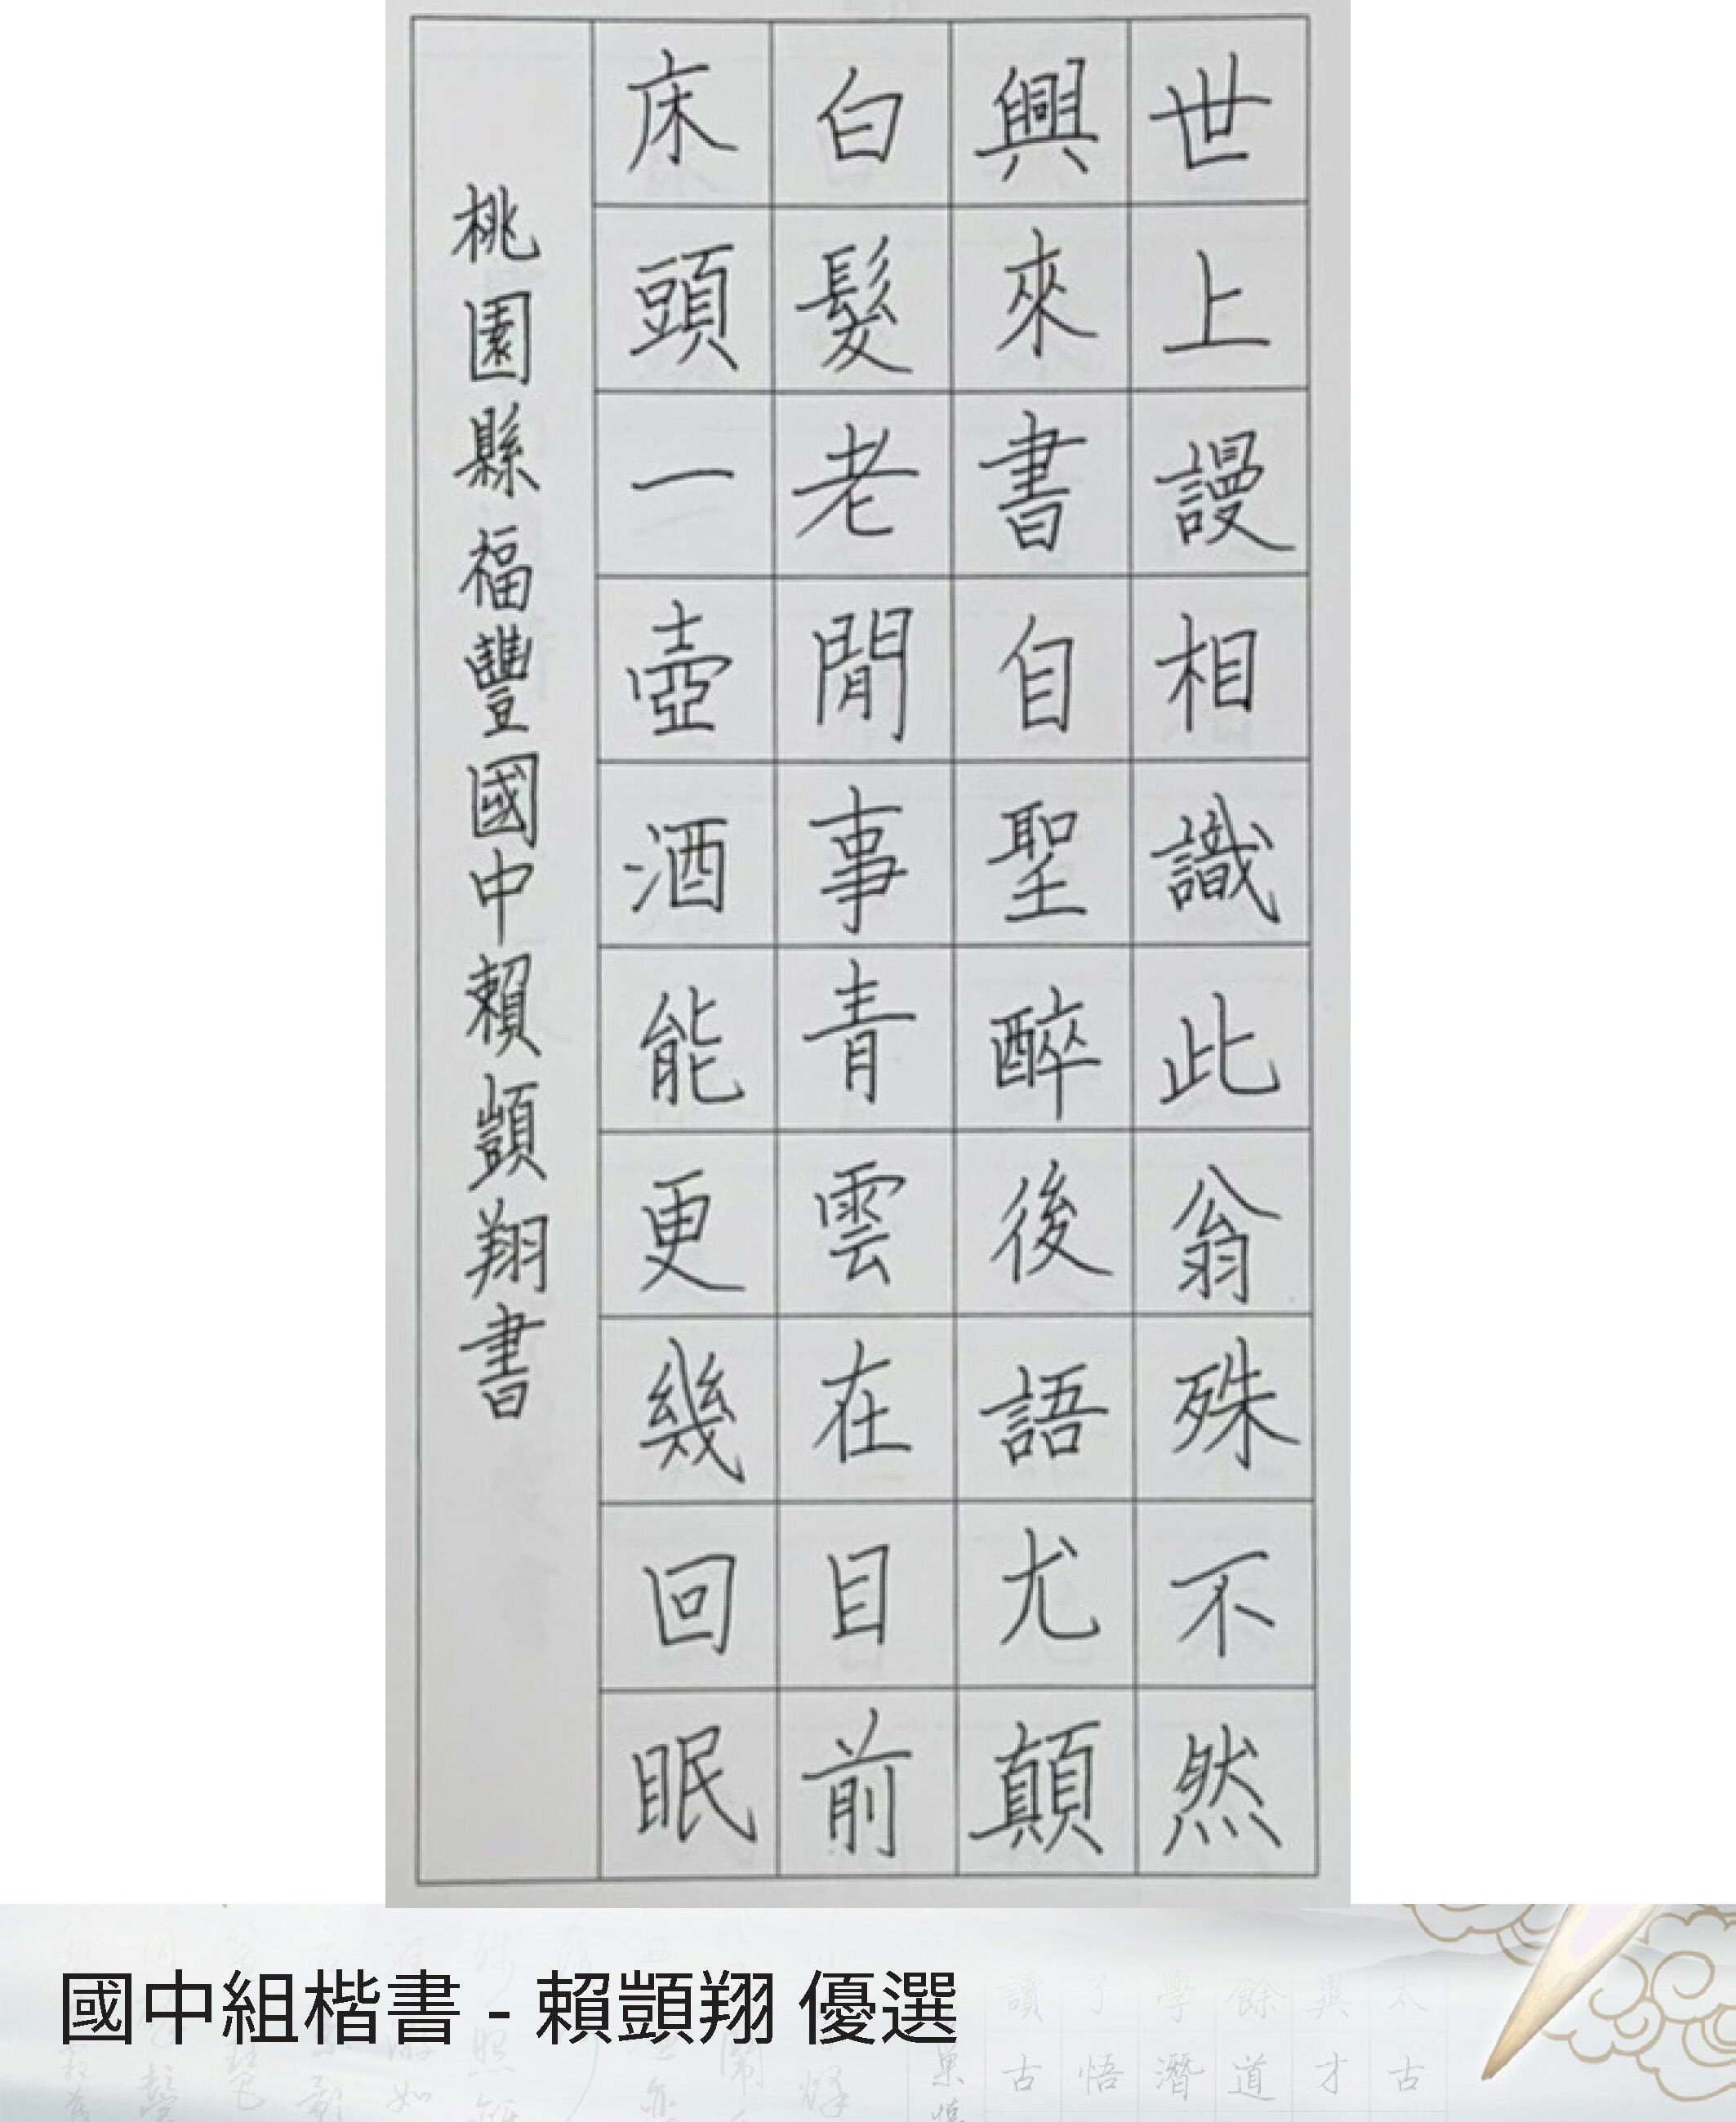 世上謾相識此翁殊不然
興來書自聖醉後語尤顛
白髮老閒事青雲在目前
床頭一壺酒能更幾回眠
桃園縣福豐國中賴顗翔書
國中組楷書 - 賴顗翔 優選
讀了學餘與太
古悟潛道才古